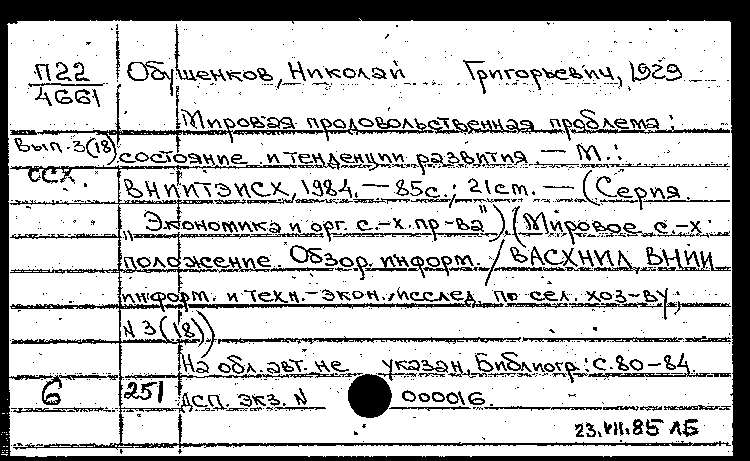 П22 Обушенков, Николай Григорьевич, 1929
4661
Мировая продовольственная проблема:
Вып. 3(18) состояние и тенденции развития. — М.:
ССХ. ВНИИТЭИСХ, 1984. — 85с.; 21cm. — (Серия
„Экономика и орг. с.-х. пр-ва") (Мировое с.-х.
положение. Обзор. информ. / ВАСХНИЛ, ВНИИ
информ. и техн.-экон. исслед. по сел. хоз-ву;
N 3 (18))
На обл. авт. не указан. Библиогр.: с. 80-84.
6 251 ДСП. экз. N 000016.
23.VII.85 ЛБ